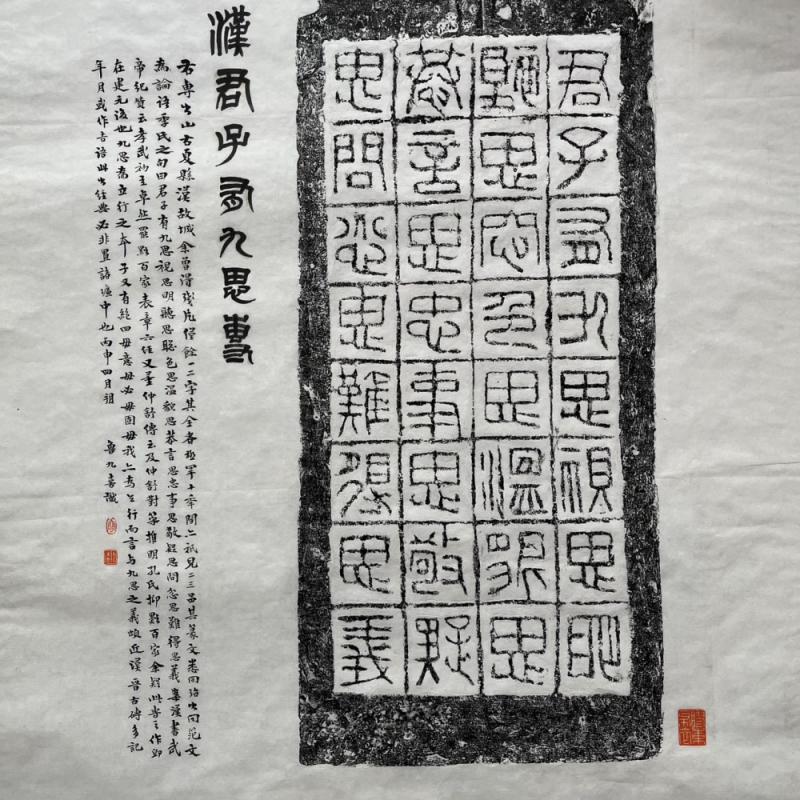 君子有九思視思明
聽思聰色思溫貌思
恭言思忠事思敬疑
思問忿思難得思義
漢君子有九思專
右專出山右夏縣漢故城余曾得殘片僅餘一二字其全者極罕十年間亦祇見二三品其篆文悉同當出同范文
為論語季氏之句曰君子有九思視思明聽思聰色思溫貌思恭言思忠事思敬疑思問忿思難得思義案漢書武
帝紀贊云孝武初立卓然罷黜百家表章六經又董仲舒傳云及仲舒對策推明孔氏抑黜百家余疑此專之作即
在建元後也九思為立行之本子又有絕四毋意毋必毋固毋我亦為立行而言與九思之義頗近漢晉古磚多記
年月或作吉語此出經典必非置諸壙中也丙申四月朔
魯九喜識